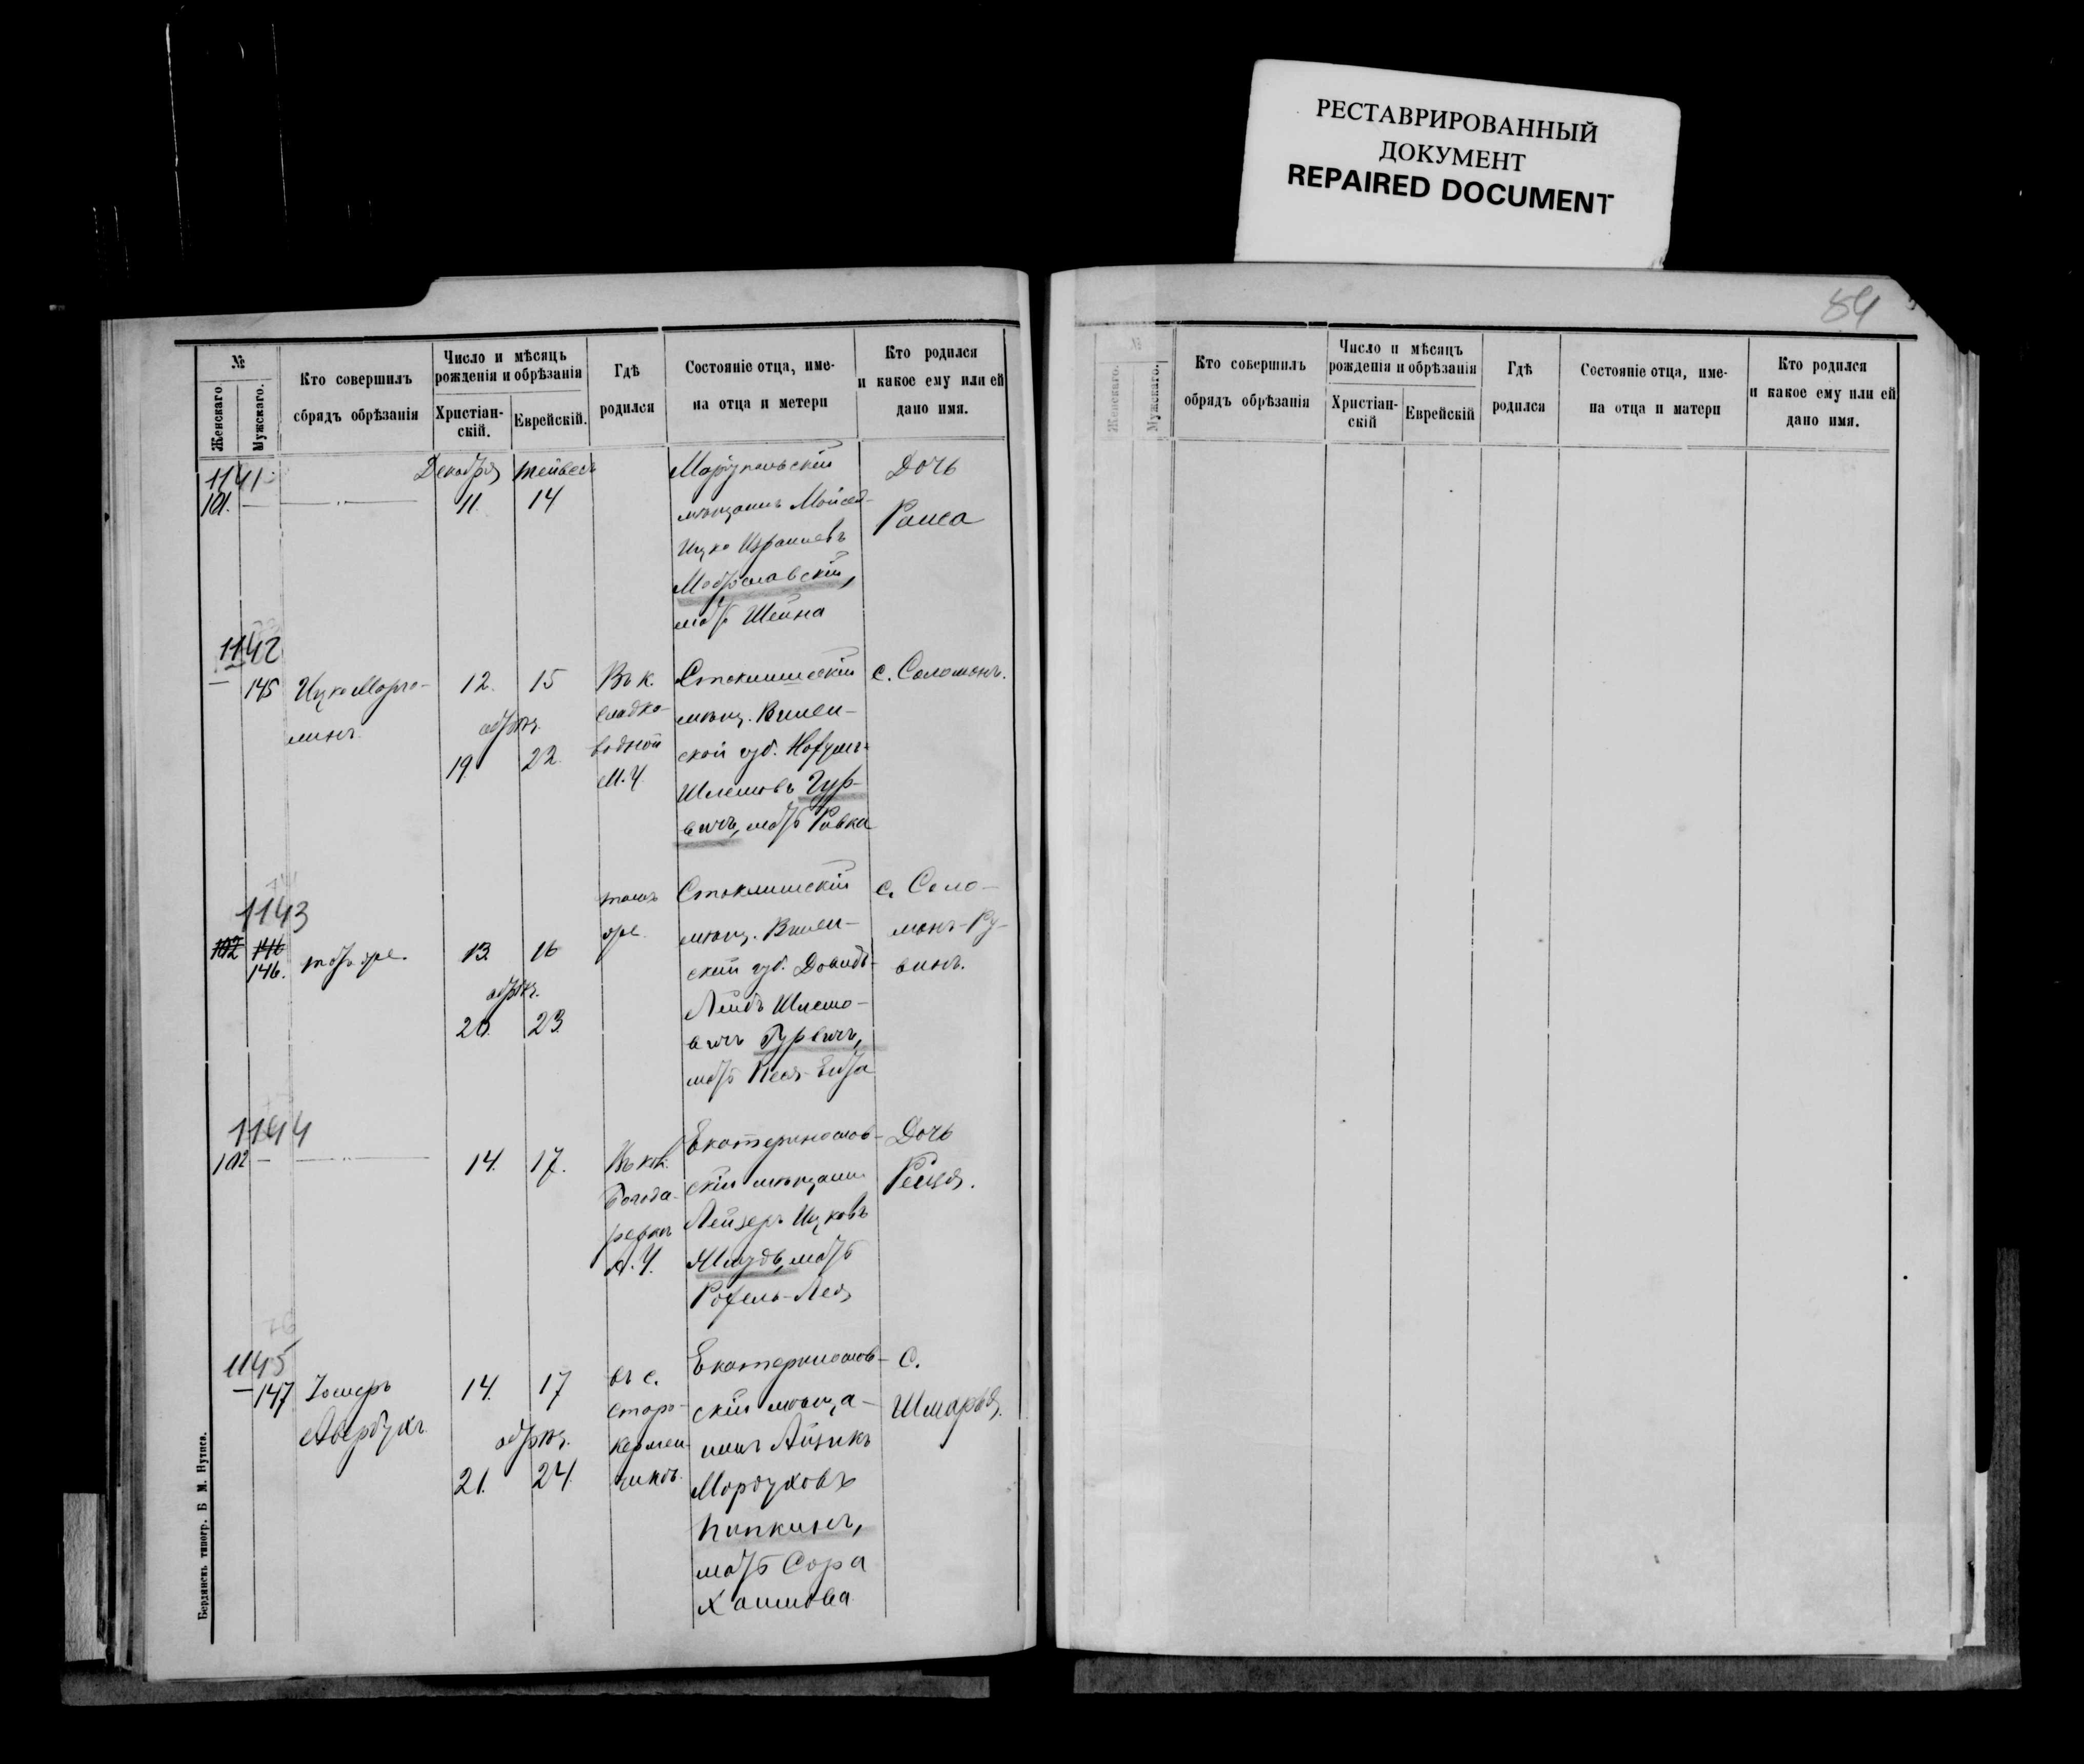 РЕСТАВРИРОВАННЫЙ
ДОКУМЕНТ
REPAIRED DOCUMENT
84
№
Женскаго.
Мужскаго.
Кто совершилъ
обрядъ обрѣзанія
Число и мѣсяцъ
рожденія и обрѣзанія
Христіан-
скій.
Еврейскій.
Гдѣ
родился
Состояніе отца, име-
на отца и метери
Кто родился
и какое ему или ей
дано имя.
1141
101. —
Декабря Тейвесъ
11. 14
Маріупольскій
мѣщанинъ Мойсей-
Ицко Израилевъ
мать Шейна
Дочь
Раиса
1142
— 145
Ицко Марго-
линъ.
12. 15
обрѣз.
19. 22.
Въ к.
Сладко-
водной
М.У.
Стоклишскій
мѣщ. Вилен-
ской губ. Нохумъ-
Шлемовъ Гур-
вичъ, мать Ривка
с. Соломонъ.
1143
102 146
146.
тотъ же.
13. 16
обрѣз.
20. 23.
тамъ
же
Стоклишскій
мѣщ. Вилен-
ской губ. Довидъ-
Лейбъ Шлемо-
вичъ Гурвичъ,
мать Песя-Ента
с. Соло-
монъ-Ру-
винъ.
1144
102 —
14. 17.
Въ кол.
Богода-
ровкѣ
А.У.
Екатеринослав-
скій мѣщанинъ
Лейзеръ Ицковъ
мать
Рохель-Лея
Дочь
Рейзя.
1145
— 147
Авербухъ.
14. 17
обрѣз.
21. 24.
въ с.
Старо-
Кермен-
чикѣ.
Екатеринослав-
скій мѣща-
нинъ Айзикъ
Мордуховъ
Пипкинъ,
мать Сора
Хаимова
С.
Шмарья.
Бердянскъ типогр. Б. М. Нутиса.
№
Женскаго.
Мужскаго.
Кто совершилъ
обрядъ обрѣзанія
Число и мѣсяцъ
рожденія и обрѣзанія
Христіан-
скій
Еврейскій
Гдѣ
родился
Состояніе отца, име-
на отца и матери
Кто родился
и какое ему или ей
дано имя.